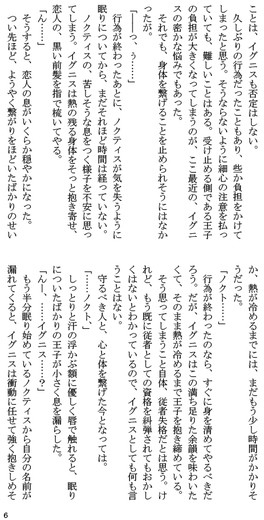 ことは、イグニスも否定はしない。
　久しぶりの行為だったこともあり、些か負担をかけて
しまったと思う。そうならないように細心の注意を払っ
ていても、難しいことはある。受け止める側である王子
の負担が大きくなってしまうのが、ここ最近の、イグニ
スの密かな悩みでもあった。
　それでも、身体を繋げることを止められそうにはなか
ったが。
「――っ、ぅ……」
　行為が終わったあとに、ノクティスが気を失うように
眠りについてから、まだそれほど時間は経っていない。
　ノクティスの、苦しそうな息をつく様子を不安に思っ
てしまい、イグニスは熱の残る身体をそっと抱き寄せ、
恋人の、黒い前髪を指で梳いてやる。
「ん……」
　そうすると、恋人の息がいくらか穏やかになった。
　つい先ほど、ようやく繋がりをほどいたばかりのせい
か、熱が冷めるまでには、まだもう少し時間がかかりそ
うだった。
「ノクト……」
　行為が終わったのなら、すぐに身を清めてやるべきだ
ろう。だが、イグニスはこの満ち足りた余韻を味わいた
くて、そのまま熱が冷めるまで王子を抱き締めている。
　そう思ってしまうこと自体、従者失格だとは思う。け
れど、もう既に従者としての資格を糾弾されてもおかし
くはないとわかっているので、イグニスとしても何も言
うことはない。
　守るべき人と、心と体を繋げた今となっては。
「……ノクト、」
　しっとりと汗の浮かぶ額に優しく唇で触れると、眠り
についたばかりの王子が小さく息を漏らした。
「ん――、……イグニス……？」
　もう半分眠り始めているノクティスから自分の名前が
漏れてくると、イグニスは衝動に任せて強く抱きしめそ
6